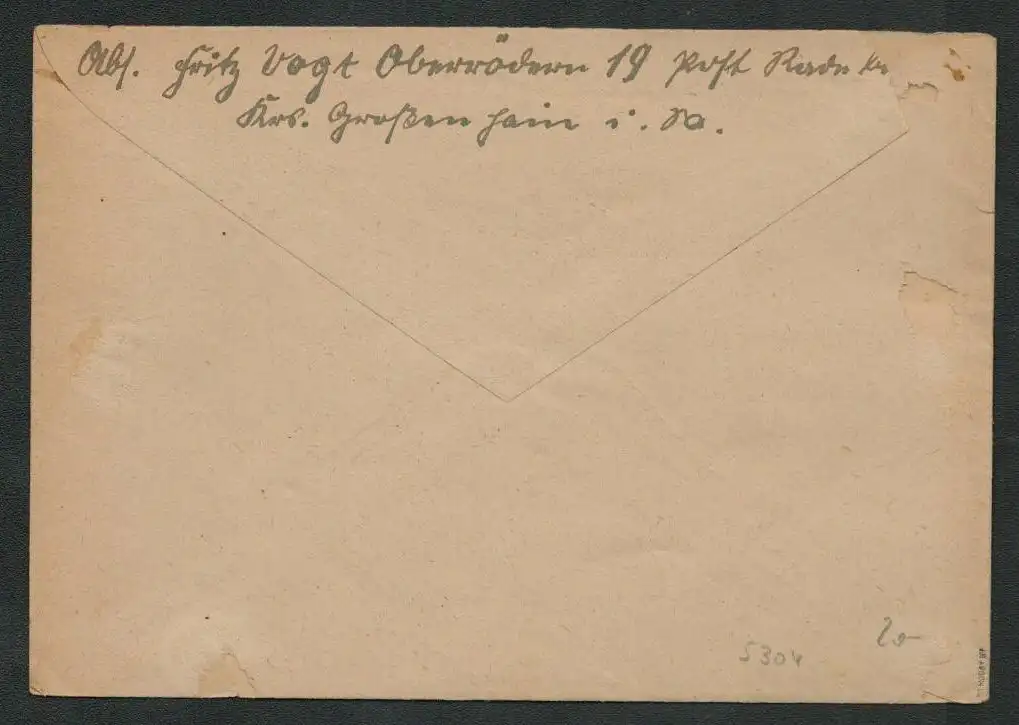 Abs. Fritz Vogt Oberrödern 19 Post Rade
Krs. Großenhain i. Sa.
5304